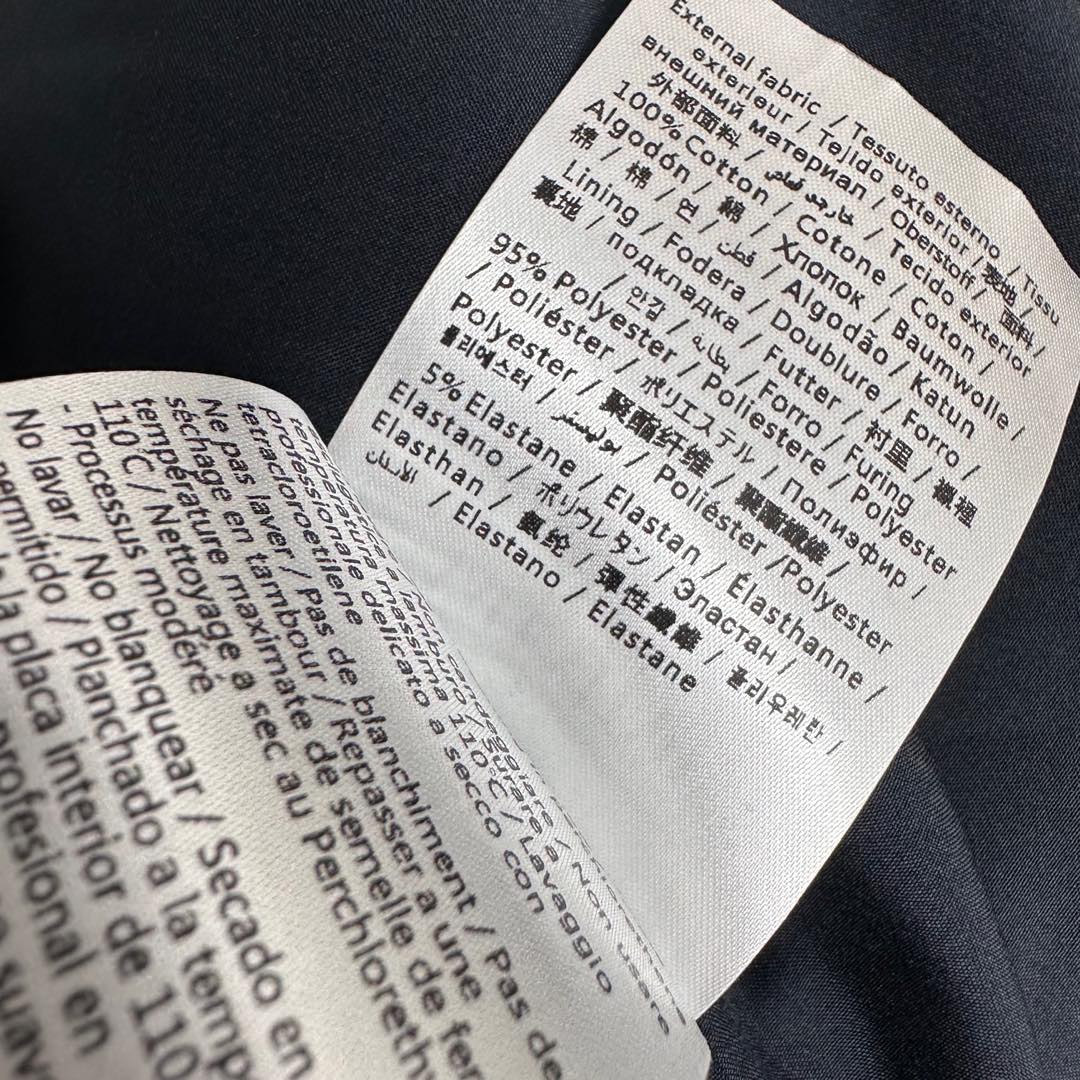 External fabric / Tessuto esterno / Tissu
exterieur / Tejido exterior / 表地 /
внешний материал / Oberstoff / 面料 /
外部面料 / قماش خارجي / Tecido exterior
100% Cotton / Cotone / Coton /
Algodón / 綿 / Хлопок / Baumwolle /
棉 / 棉 / 면 / قطن / Algodão / Katun
Lining / Fodera / Doublure / Forro /
裏地 / подкладка / Futter / 衬里 / 襯裡
/ 안감 / بطانة / Forro / Furing
95% Polyester / Poliestere / Polyester
/ Poliéster / ポリエステル / Полиэфир /
Polyester / 聚酯纤维 / 聚酯纖維 /
폴리에스터 / بوليستر / Poliéster /Polyester
5% Elastane / Elastan / Élasthanne /
Elastano / ポリウレタン / Эластан /
Elasthan / 氨纶 / 彈性纖維 / 폴리우레탄 /
/ Elastano / Elastane
massima 110°C / Lavaggio
professionale delicato a secco con
tetracloroetilene
Ne pas laver / Pas de blanchiment / Pas de
séchage en tambour / Repasser à une
température maximate de semelle de fer
110°C / Nettoyage à sec au Perchlorethy
- Processus modéré
No lavar / No blanquear / Secado en
permitido / Planchado a la temp
la placa interior de 110
profesional en
suav